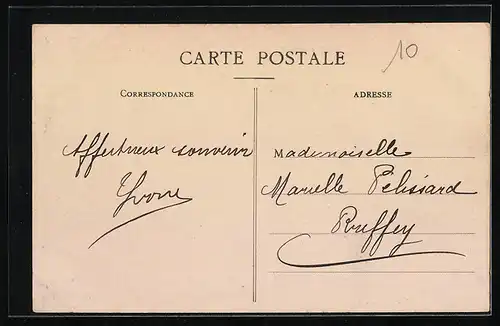 CARTE POSTALE
10
CORRESPONDANCE
ADRESSE
Affectueux souvenir
Yvonne
Mademoiselle
Marielle Pelissard
Ruffey